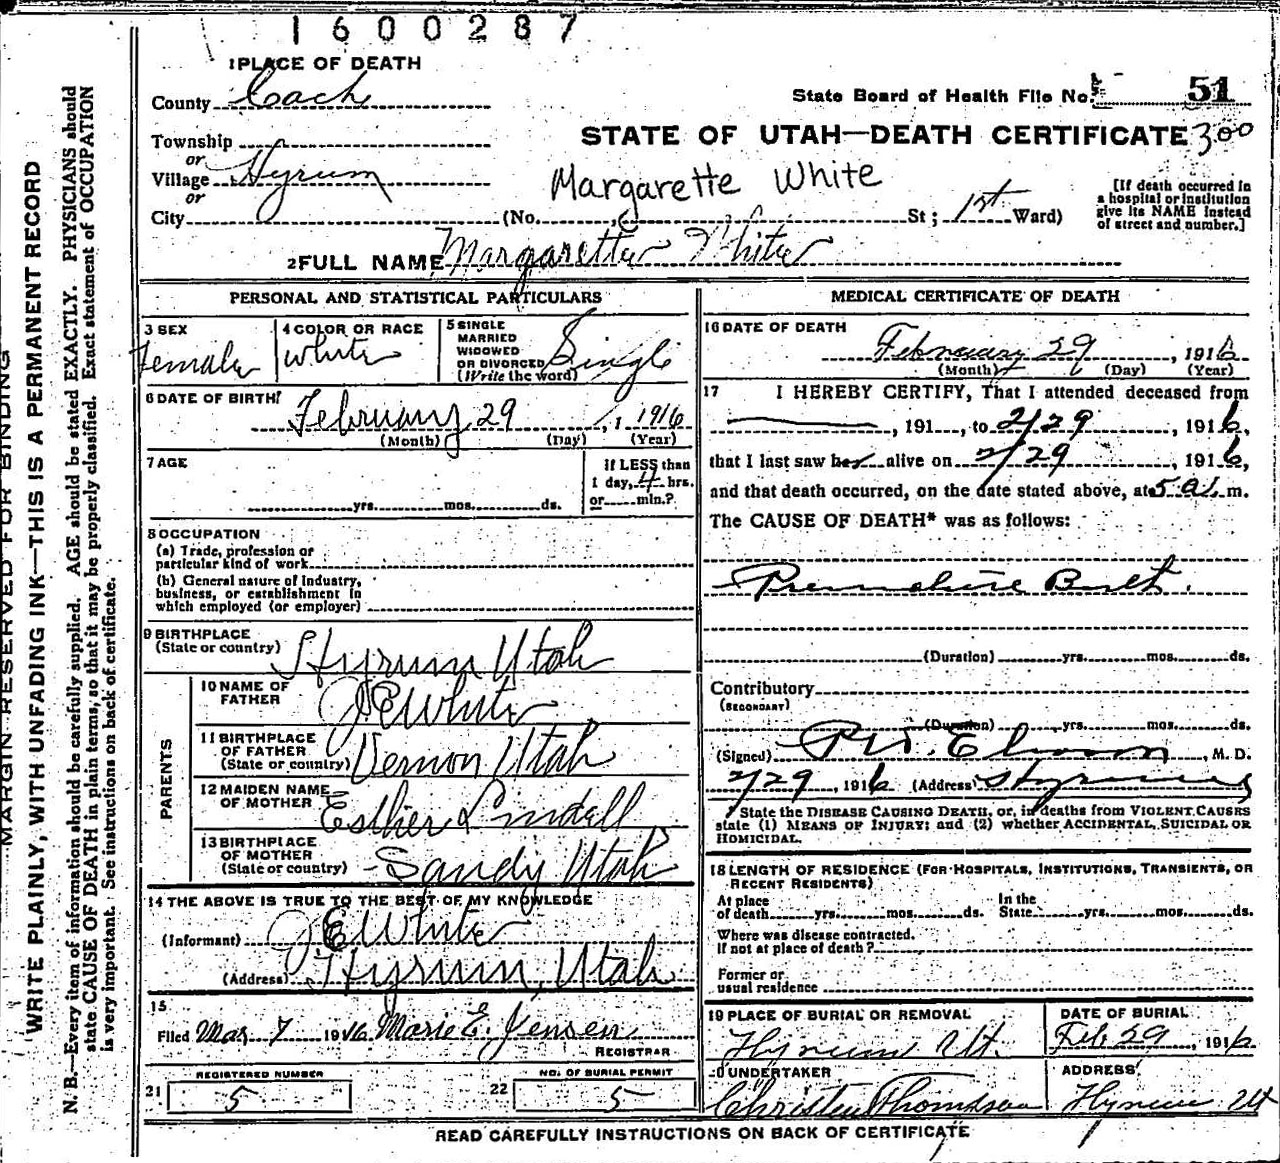 1600287
1 PLACE OF DEATH
County Cache
State Board of Health File No. 51
Township
STATE OF UTAH—DEATH CERTIFICATE 300
or
Village Hyrum
Margarette White
or
City (No. St; 1st Ward)
[If death occurred in
a hospital or institution
give its NAME instead
of street and number.]
2 FULL NAME Margarette White
PERSONAL AND STATISTICAL PARTICULARS
3 SEX Female
4 COLOR OR RACE White
5 SINGLE
MARRIED
WIDOWED
OR DIVORCED
(Write the word) Single
6 DATE OF BIRTH
February 29, 1916
(Month) (Day) (Year)
7 AGE
yrs. mos. ds.
If LESS than
1 day, 4 hrs.
or min.?
8 OCCUPATION
(a) Trade, profession or
particular kind of work
(b) General nature of industry,
business, or establishment in
which employed (or employer)
9 BIRTHPLACE
(State or country) Hyrum Utah
PARENTS
10 NAME OF
FATHER J E White
11 BIRTHPLACE
OF FATHER
(State or country) Vernon Utah
12 MAIDEN NAME
OF MOTHER Esther Lindell
13 BIRTHPLACE
OF MOTHER
(State or country) Sandy Utah
14 THE ABOVE IS TRUE TO THE BEST OF MY KNOWLEDGE
(Informant) J E White
(Address) Hyrum, Utah
15
Filed Mar 7 1916 Marie E. Jensen
REGISTRAR
21 REGISTERED NUMBER
5
22 NO. OF BURIAL PERMIT
5
MEDICAL CERTIFICATE OF DEATH
16 DATE OF DEATH
February 29, 1916
(Month) (Day) (Year)
17 I HEREBY CERTIFY, That I attended deceased from
, 191 , to 2/29, 1916,
that I last saw her alive on 2/29, 1916,
and that death occurred, on the date stated above, at 5 a. m.
The CAUSE OF DEATH* was as follows:
Premature Birth.
(Duration) yrs. mos. ds.
Contributory
(SECONDARY)
(Duration) yrs. mos. ds.
(Signed) , M. D.
2/29, 1916 (Address) Hyrum
* State the DISEASE CAUSING DEATH, or, in deaths from VIOLENT CAUSES
state (1) MEANS OF INJURY; and (2) whether ACCIDENTAL, SUICIDAL OR
HOMICIDAL.
18 LENGTH OF RESIDENCE (FOR HOSPITALS, INSTITUTIONS, TRANSIENTS, OR
RECENT RESIDENTS)
At place
of death yrs. mos. ds.
In the
State yrs. mos. ds.
Where was disease contracted.
If not at place of death?
Former or
usual residence
19 PLACE OF BURIAL OR REMOVAL
Hyrum Ut.
DATE OF BURIAL
Feb. 29, 1916
20 UNDERTAKER
Thomsen
ADDRESS
Hyrum Ut
READ CAREFULLY INSTRUCTIONS ON BACK OF CERTIFICATE
MARGIN RESERVED FOR BINDING
WRITE PLAINLY, WITH UNFADING INK—THIS IS A PERMANENT RECORD
N. B.—Every item of information should be carefully supplied. AGE should be stated EXACTLY. PHYSICIANS should
state CAUSE OF DEATH in plain terms, so that it may be properly classified. Exact statement of OCCUPATION
is very important. See instructions on back of certificate.